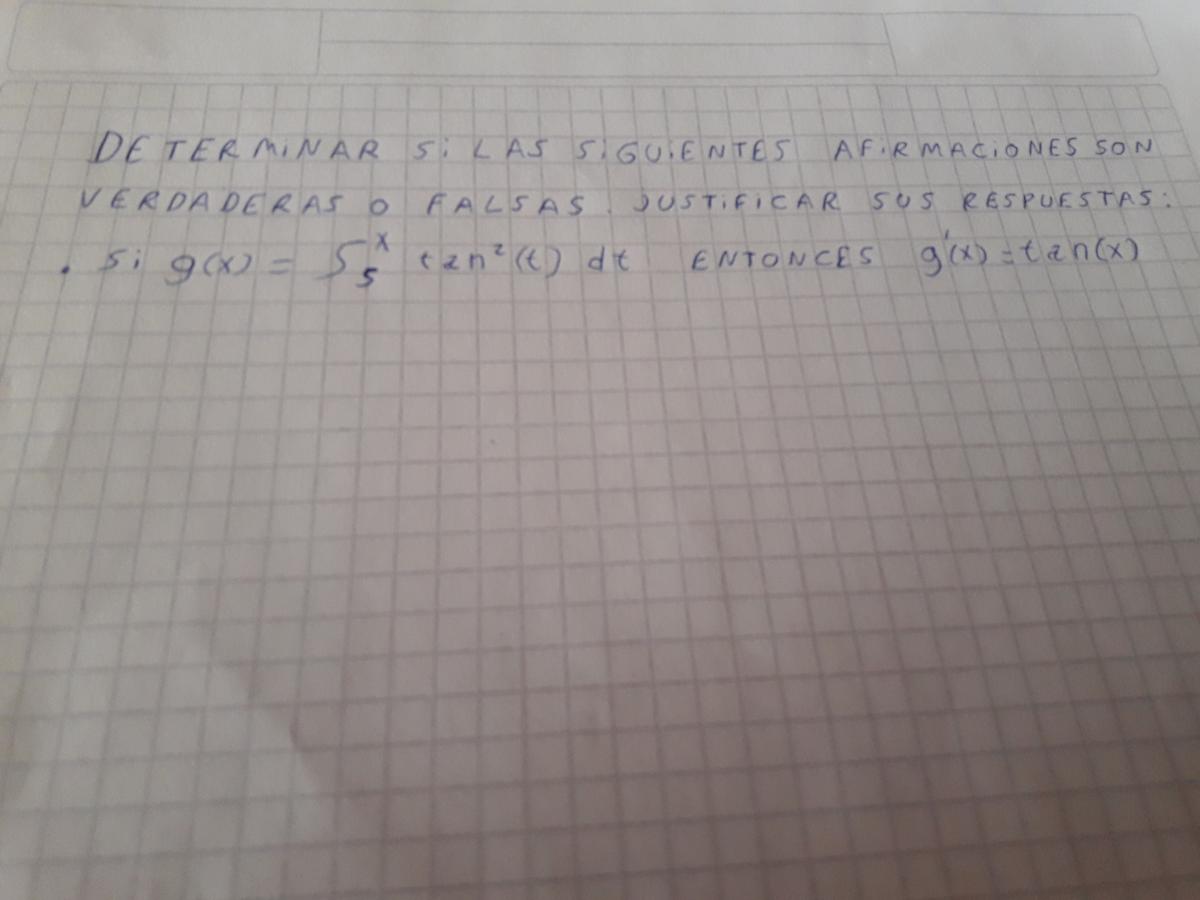 DETERMINAR Si LAS SiGUiENTES AFiRMACiONES SON
VERDADERAS O FALSAS. JUSTiFiCAR SUS RESPUESTAS:
. Si g(x) = ∫₅ˣ tan²(t) dt ENTONCES g'(x) = tan(x)